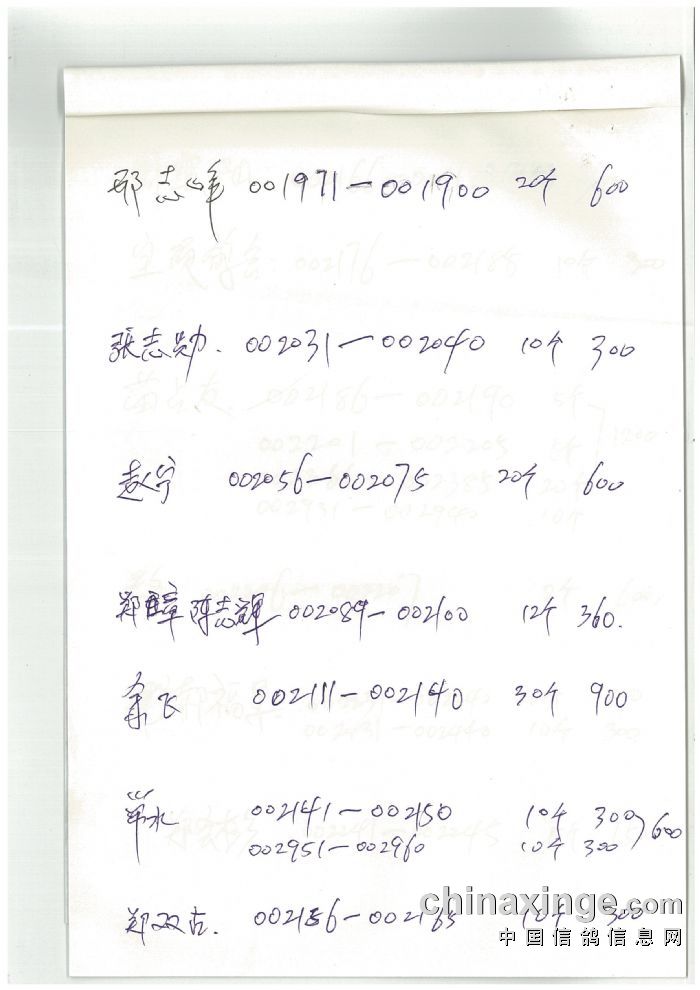 邢志峰 001971-001900 20个 600
张志勋. 002031-002040 10个 300
赵宁 002056-002075 20个 600
郑章 陈志辉 002089-002100 12个 360.
余飞 002111-002140 30个 900
单水 002141-002150 10个 300
002951-002960 10个 300 600
郑双古. 002156-002165 10个 300
chinaxinge.com
中国信鸽信息网